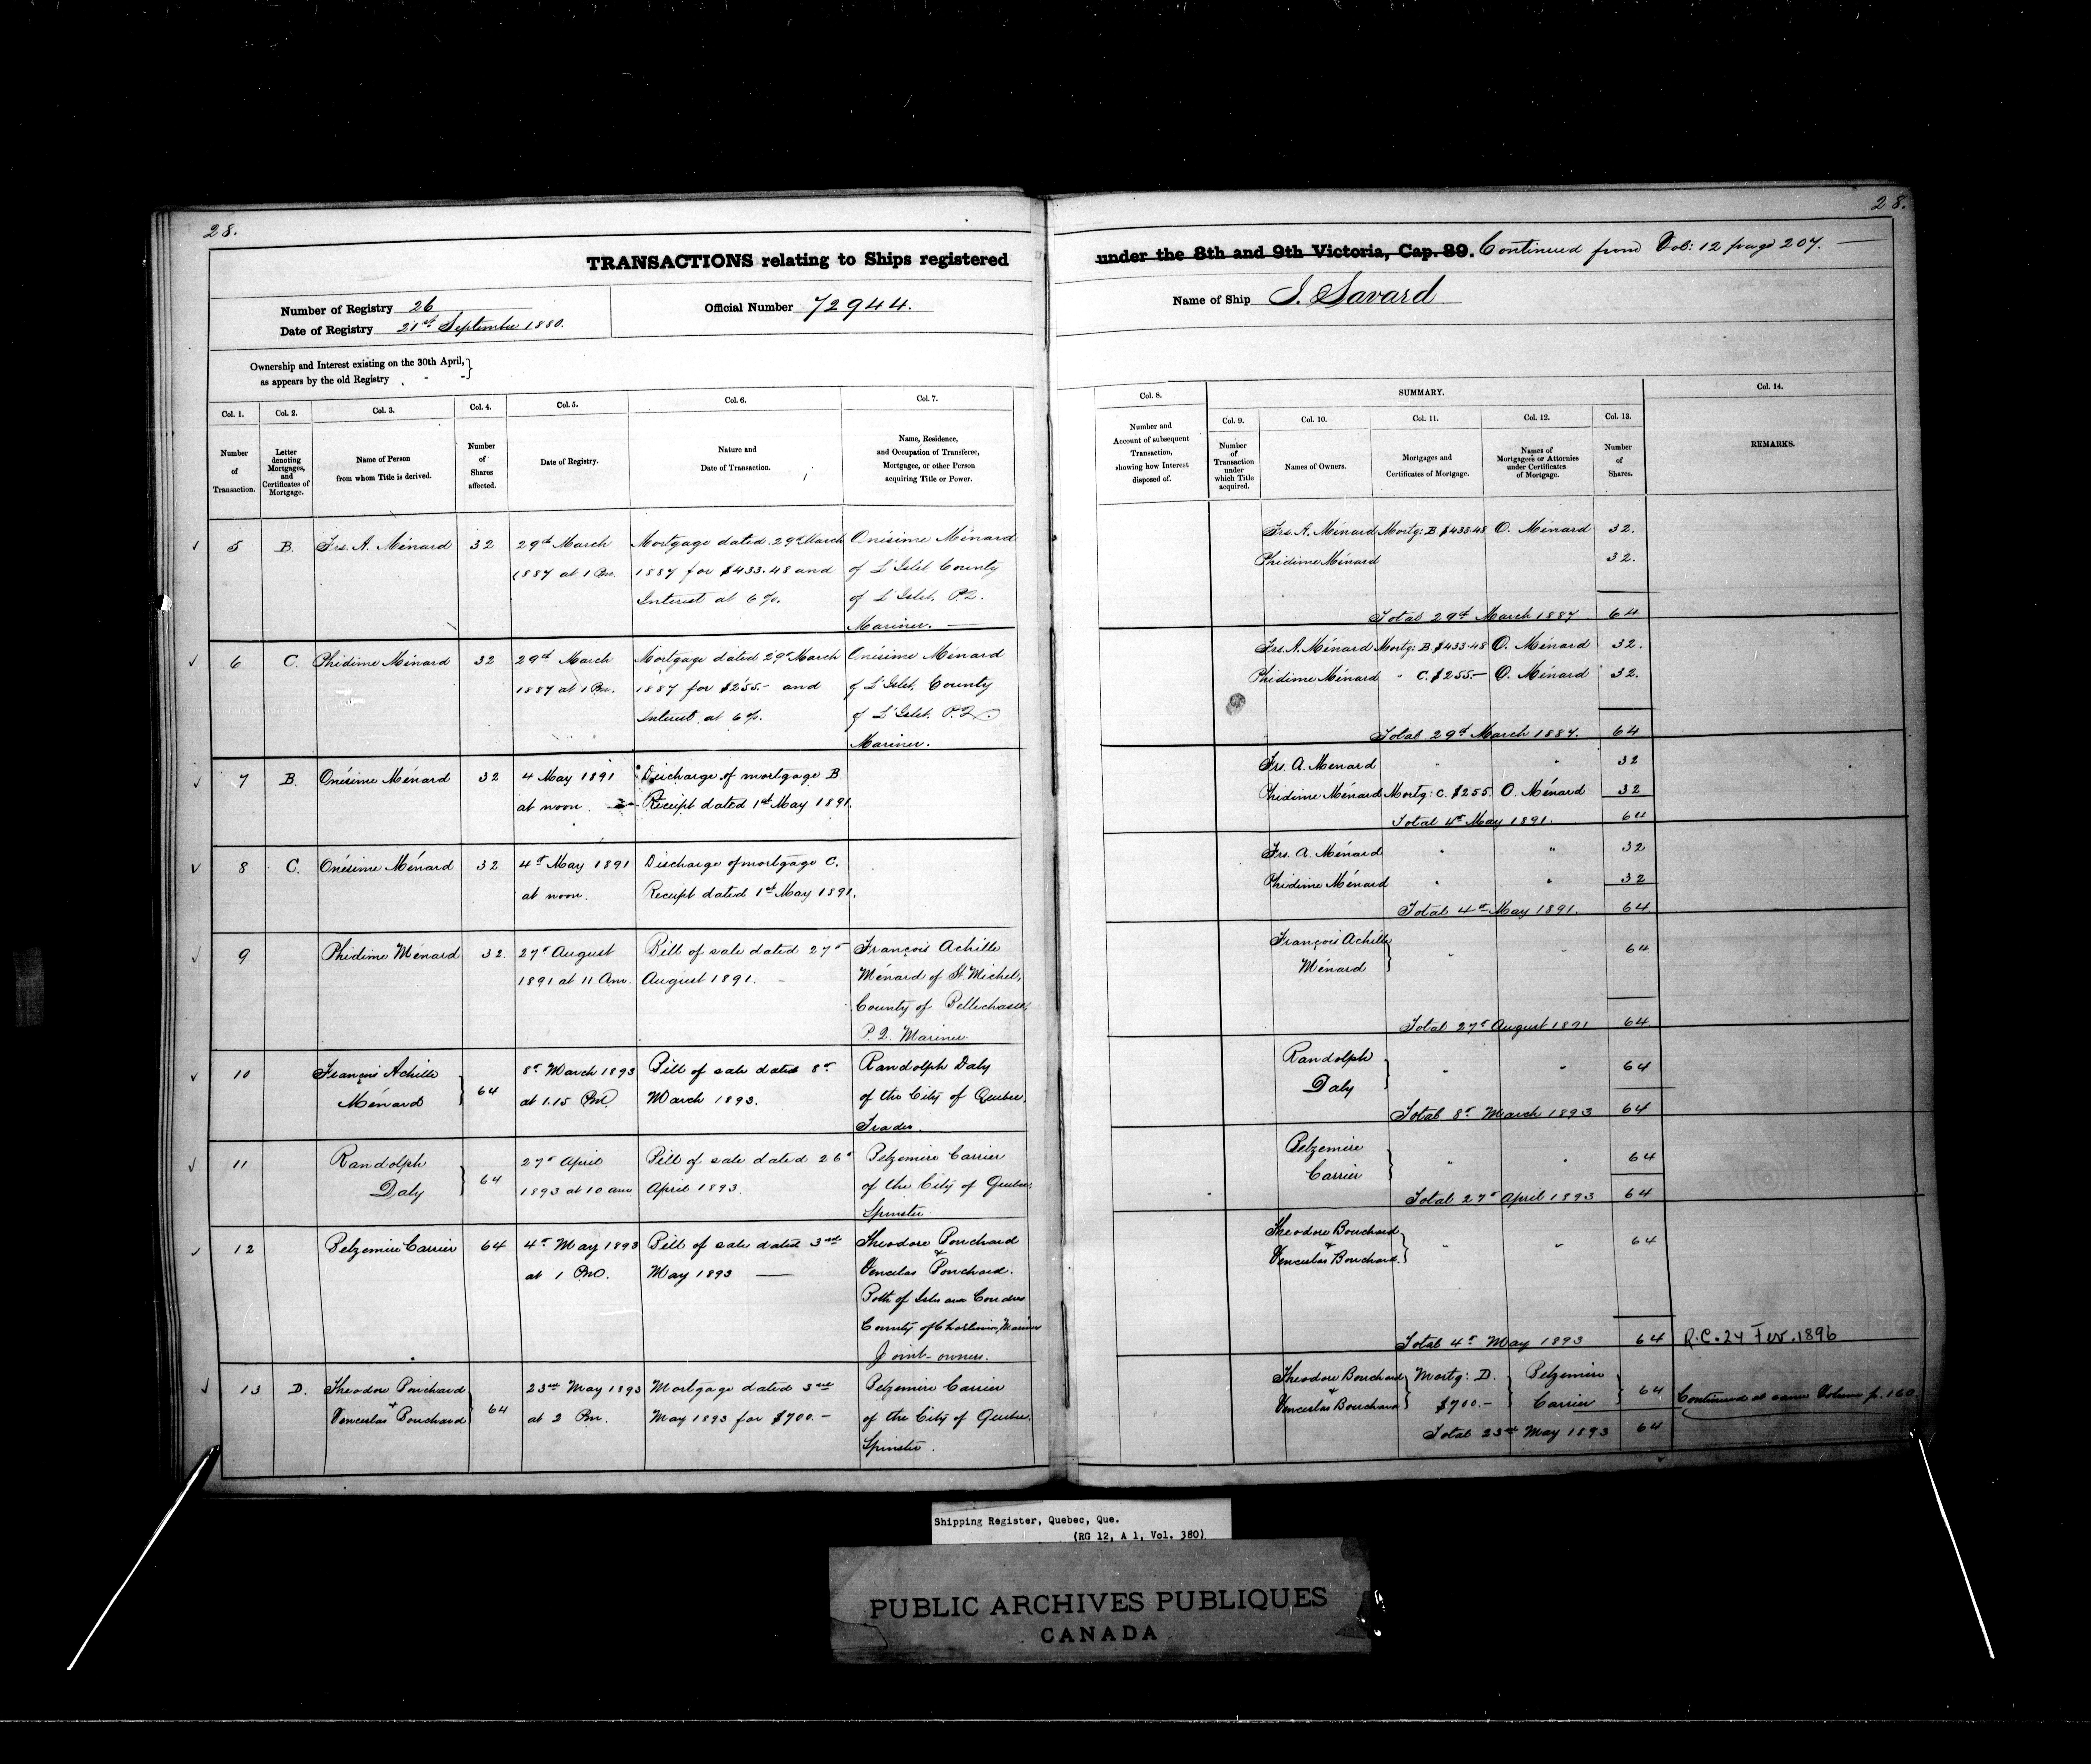 28.
28.
TRANSACTIONS relating to Ships registered under the 8th and 9th Victoria, Cap. 89. Continued from Vol: 12 page 207.
Number of Registry 26
Date of Registry 21st September 1880.
Official Number 72944.
Name of Ship J. Savard
Ownership and Interest existing on the 30th April,
as appears by the old Registry
Col. 1.
Number
of
Transaction.
Col. 2.
Letter
denoting
Mortgages,
and
Certificates of
Mortgage.
Col. 3.
Name of Person
from whom Title is derived.
Col. 4.
Number
of
Shares
affected.
Col. 5.
Date of Registry.
Col. 6.
Nature and
Date of Transaction.
Col. 7.
Name, Residence,
and Occupation of Transferee,
Mortgagee, or other Person
acquiring Title or Power.
Col. 8.
Number and
Account of subsequent
Transaction,
showing how Interest
disposed of.
SUMMARY.
Col. 9.
Number
of
Transaction
under
which Title
acquired.
Col. 10.
Names of Owners.
Col. 11.
Mortgages and
Certificates of Mortgage.
Col. 12.
Names of
Mortgagees or Attornies
under Certificates
of Mortgage.
Col. 13.
Number
of
Shares.
Col. 14.
REMARKS.
5 B. Frs. A. Ménard 32
29th March
1887 at 1 Pm.
Mortgage dated 29th March
1887 for $433.48 and
Interest at 6%.
Onésime Ménard
of L'Islet County
of L'Islet. P.Q.
Mariner.
Frs. A. Ménard Mortg: B. $433.48 O. Ménard 32.
Phidime Ménard 32.
Total 29th March 1887 64
6 C. Phidime Ménard 32
29th March
1887 at 1 Pm.
Mortgage dated 29th March
1887 for $255.- and
Interest at 6%.
Onésime Ménard
of L'Islet. County
of L'Islet. P.Q.
Mariner.
Frs. A. Ménard Mortg: B. $433.48 O. Ménard 32.
Phidime Ménard " C. $255.- O. Ménard 32.
Total 29th March 1887. 64
7 B. Onésime Ménard 32
4 May 1891
at noon.
Discharge of mortgage B.
Receipt dated 1st May 1891.
Frs. A. Ménard " " 32
Phidime Ménard Mortg: C. $255. O. Ménard 32
Total 4th May 1891. 64
8 C. Onésime Ménard 32
4th May 1891
at noon.
Discharge of mortgage C.
Receipt dated 1st May 1891.
Frs. A. Ménard " " 32
Phidime Ménard " " 32
Total 4th May 1891. 64
9 Phidime Ménard 32.
27th August
1891 at 11 Am.
Bill of sale dated 27th
August 1891.
François Achille
Ménard of St. Michel,
County of Bellechasse,
P. Q. Mariner
François Achille
Ménard " " 64
Total 27th August 1891 64
10 François Achille
Ménard 64
8th March 1893
at 1.15 Pm
Bill of sale dated 8th
March 1893.
Randolph Daly
of the City of Quebec.
Trader.
Randolph
Daly " " 64
Total 8th March 1893 64
11 Randolph
Daly 64
27th April
1893 at 10 am
Bill of sale dated 26th
April 1893.
Belzemire Carrier
of the City of Quebec,
Spinster.
Belzemire
Carrier " " 64
Total 27th April 1893 64
12 Belzemire Carrier 64
4th May 1893
at 1 Pm.
Bill of sale dated 3rd
May 1893
Theodore Bouchard
&
Venceslas Bouchard.
Both of Isle aux Coudres
County of Charlevoix, Mariners
Joint-owners.
Theodore Bouchard
&
Venceslas Bouchard. " " 64
Total 4th May 1893 64
R.C. 24 Fev. 1896
13 D. Theodore Bouchard
&
Venceslas Bouchard 64
23rd May 1893
at 2 Pm.
Mortgage dated 3rd
May 1893 for $700.-
Belzemire Carrier
of the City of Quebec.
Spinster.
Theodore Bouchard
&
Venceslas Bouchard
Mortg: D.
$700.-
Belzemire
Carrier
64
Continued at same Volume p. 160.
Total 23rd May 1893 64
Shipping Register, Quebec, Que.
(RG 12, A 1, Vol. 380)
PUBLIC ARCHIVES PUBLIQUES
CANADA